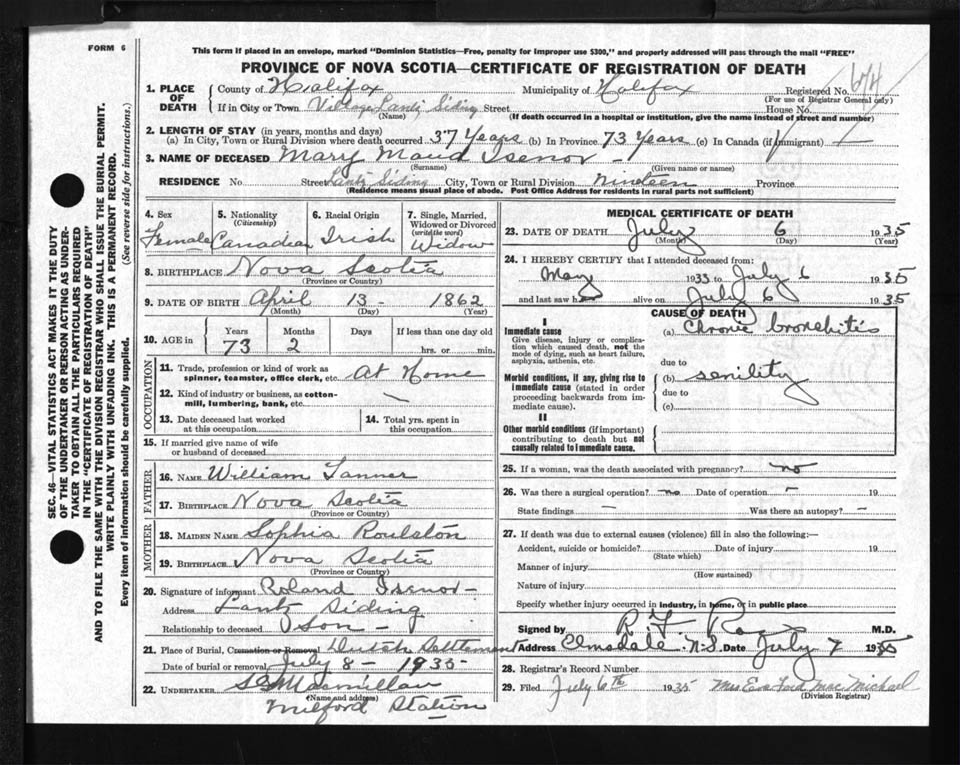 FORM 6
This form if placed in an envelope, marked "Dominion Statistics—Free, penalty for improper use $300," and properly addressed will pass through the mail "FREE"
PROVINCE OF NOVA SCOTIA—CERTIFICATE OF REGISTRATION OF DEATH
1. PLACE OF DEATH County of Halifax Municipality of Halifax Registered No. 674
(For use of Registrar General only)
If in City or Town Village Lantz Siding Street House No.
(Name) (If death occurred in a hospital or institution, give the name instead of street and number)
2. LENGTH OF STAY (in years, months and days)
(a) In City, Town or Rural Division where death occurred 37 Years (b) In Province 73 Years (c) In Canada (if immigrant) —
3. NAME OF DECEASED Mary Maud Isenor —
(Surname) (Given name or names)
RESIDENCE No. Street Lantz Siding City, Town or Rural Division Nineteen Province
(Residence means usual place of abode. Post Office Address for residents in rural parts not sufficient)
4. Sex Female
5. Nationality (Citizenship) Canadian
6. Racial Origin Irish
7. Single, Married, Widowed or Divorced (write the word) Widow
8. BIRTHPLACE Nova Scotia
(Province or Country)
9. DATE OF BIRTH April 13 - 1862
(Month) (Day) (Year)
10. AGE in Years Months Days If less than one day old
73 2 hrs. or min.
OCCUPATION
11. Trade, profession or kind of work as spinner, teamster, office clerk, etc. At Home
12. Kind of industry or business, as cotton-mill, lumbering, bank, etc. —
13. Date deceased last worked at this occupation
14. Total yrs. spent in this occupation
15. If married give name of wife or husband of deceased
FATHER
16. NAME William Tanner
17. BIRTHPLACE Nova Scotia
(Province or Country)
MOTHER
18. MAIDEN NAME Sophia Roulston
19. BIRTHPLACE Nova Scotia
(Province or Country)
20. Signature of informant Roland Isenor —
Address Lantz Siding
Relationship to deceased Son —
21. Place of Burial, Cremation or Removal Dutch Settlement
Date of burial or removal July 8 - 1935 -
22. UNDERTAKER Macmillan
(Name and address)
Milford Station
MEDICAL CERTIFICATE OF DEATH
23. DATE OF DEATH July 6 1935
(Month) (Day) (Year)
24. I HEREBY CERTIFY that I attended deceased from:
May 1933 to July 6 1935
and last saw h alive on July 6 1935
CAUSE OF DEATH
I
Immediate cause (a) Chronic bronchitis
Give disease, injury or complication which caused death, not the mode of dying, such as heart failure, asphyxia, asthenia, etc.
due to
Morbid conditions, if any, giving rise to immediate cause (stated in order proceeding backwards from immediate cause).
(b) senility
due to
(c)
II
Other morbid conditions (if important) contributing to death but not causally related to immediate cause.
25. If a woman, was the death associated with pregnancy? no
26. Was there a surgical operation? no Date of operation — 19
State findings — Was there an autopsy? —
27. If death was due to external causes (violence) fill in also the following:—
Accident, suicide or homicide? Date of injury 19
(State which)
Manner of injury
(How sustained)
Nature of injury
Specify whether injury occurred in industry, in home, or in public place
Signed by R. F. M.D.
Address Elmsdale N.S. Date July 7 1935
28. Registrar's Record Number
29. Filed July 6th 1935 Mrs Eva Ford MacMichael
(Division Registrar)
SEC. 46—VITAL STATISTICS ACT MAKES IT THE DUTY
OF THE UNDERTAKER OR PERSON ACTING AS UNDER-
TAKER TO OBTAIN ALL THE PARTICULARS REQUIRED
IN THE "CERTIFICATE OF REGISTRATION OF DEATH"
AND TO FILE THE SAME WITH THE DIVISION REGISTRAR WHO SHALL ISSUE THE BURIAL PERMIT.
WRITE PLAINLY WITH UNFADING INK. THIS IS A PERMANENT RECORD.
Every item of information should be carefully supplied. (See reverse side for instructions.)